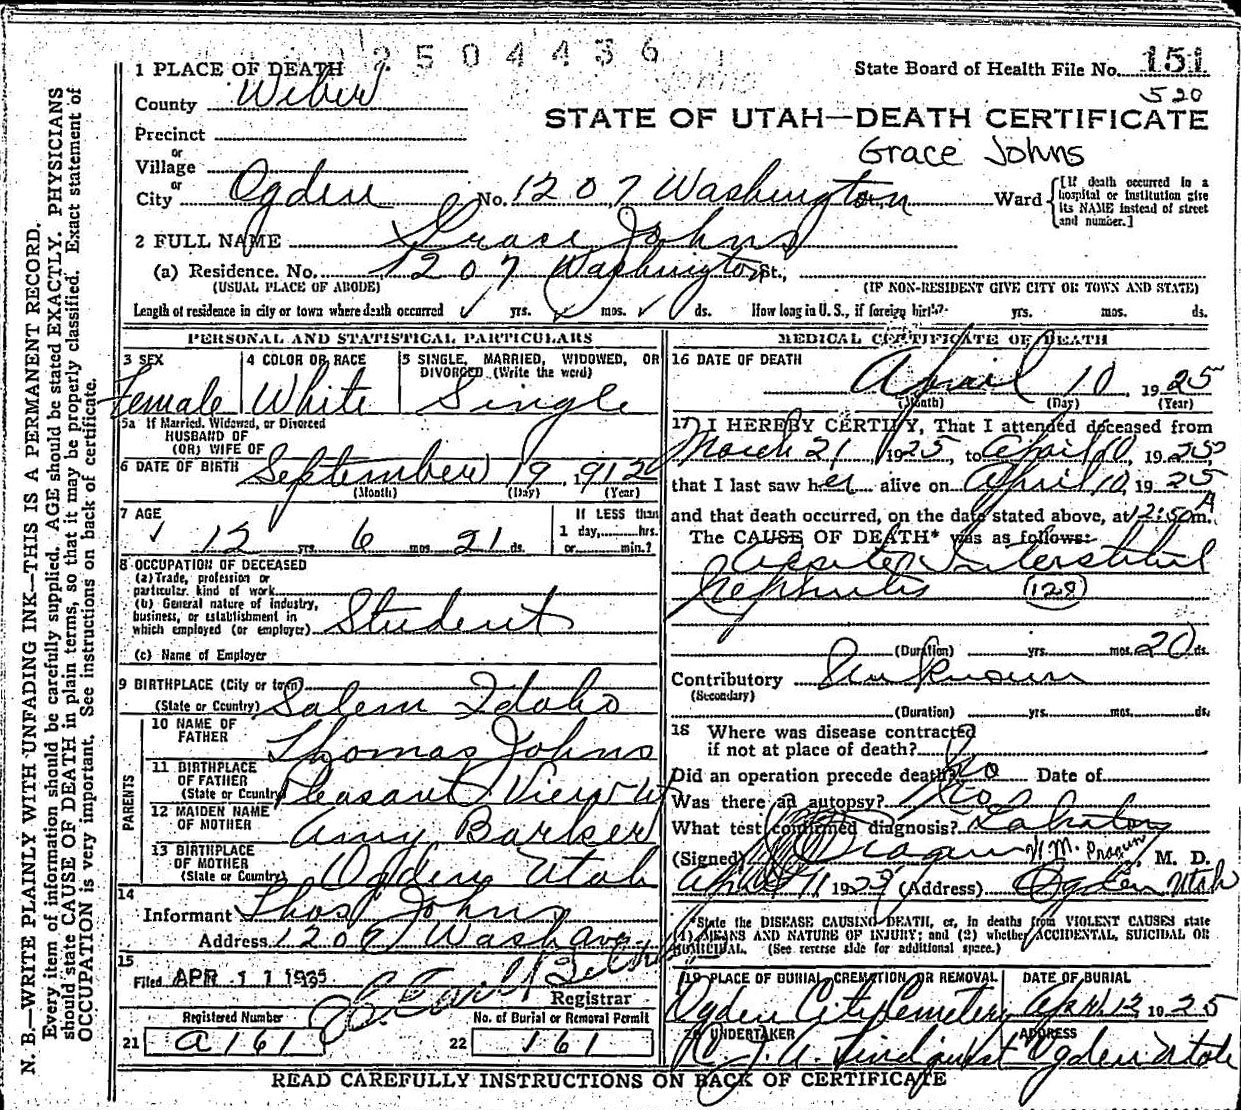 2504436
1 PLACE OF DEATH
State Board of Health File No. 151
520
County Weber
STATE OF UTAH—DEATH CERTIFICATE
Precinct
or
Grace Johns
Village
or
City Ogden No. 1207 Washington Ward [If death occurred in a hospital or institution give its NAME instead of street and number.]
2 FULL NAME Grace Johns
(a) Residence. No. 1207 Washington St.,
(USUAL PLACE OF ABODE) (IF NON-RESIDENT GIVE CITY OR TOWN AND STATE)
Length of residence in city or town where death occurred yrs. mos. ds. How long in U. S., if foreign birth? yrs. mos. ds.
PERSONAL AND STATISTICAL PARTICULARS
3 SEX
Female
4 COLOR OR RACE
White
5 SINGLE, MARRIED, WIDOWED, OR
DIVORCED (Write the word)
Single
5a If Married, Widowed, or Divorced
HUSBAND OF
(OR) WIFE OF
6 DATE OF BIRTH September 19, 1912
(Month) (Day) (Year)
7 AGE
12 yrs 6 mos. 21 ds.
If LESS than
1 day, hrs.
or min.?
8 OCCUPATION OF DECEASED
(a) Trade, profession or
particular kind of work
(b) General nature of industry,
business, or establishment in
which employed (or employer) Student
(c) Name of Employer
9 BIRTHPLACE (City or town)
(State or Country) Salem Idaho
PARENTS
10 NAME OF
FATHER Thomas Johns
11 BIRTHPLACE
OF FATHER
(State or Country) Pleasant View Ut
12 MAIDEN NAME
OF MOTHER Amy Barker
13 BIRTHPLACE
OF MOTHER
(State or Country) Ogden Utah
14
Informant Thos Johns
Address 1207 Wash Ave
15
Filed APR 11 1925
Registrar
Registered Number
21 a 161
No. of Burial or Removal Permit
22 161
MEDICAL CERTIFICATE OF DEATH
16 DATE OF DEATH
April 10, 1925
(Month) (Day) (Year)
17 I HEREBY CERTIFY, That I attended deceased from
March 21, 1925, to April 10, 1925
that I last saw her alive on April 10, 1925
and that death occurred, on the date stated above, at 12:50 A m.
The CAUSE OF DEATH* was as follows:
Interstitial
Nephritis (128)
(Duration) yrs. mos. 20 ds.
Contributory Unknown
(Secondary)
(Duration) yrs. mos. ds.
18 Where was disease contracted
if not at place of death?
Did an operation precede death? No Date of
Was there an autopsy? No
What test confirmed diagnosis? Labratory
(Signed) M. D.
April 11 1925 (Address) Ogden Utah
*State the DISEASE CAUSING DEATH, or, in deaths from VIOLENT CAUSES state
(1) MEANS AND NATURE OF INJURY; and (2) whether ACCIDENTAL, SUICIDAL OR
HOMICIDAL. (See reverse side for additional space.)
19 PLACE OF BURIAL, CREMATION OR REMOVAL
Ogden City Cemetery
DATE OF BURIAL
Apr. 12, 1925
20 UNDERTAKER
J. A. Lindquist
ADDRESS
Ogden Utah
READ CAREFULLY INSTRUCTIONS ON BACK OF CERTIFICATE
N. B.—WRITE PLAINLY WITH UNFADING INK—THIS IS A PERMANENT RECORD.
Every item of information should be carefully supplied. AGE should be stated EXACTLY. PHYSICIANS
should state CAUSE OF DEATH in plain terms, so that it may be properly classified. Exact statement of
OCCUPATION is very important. See instructions on back of certificate.